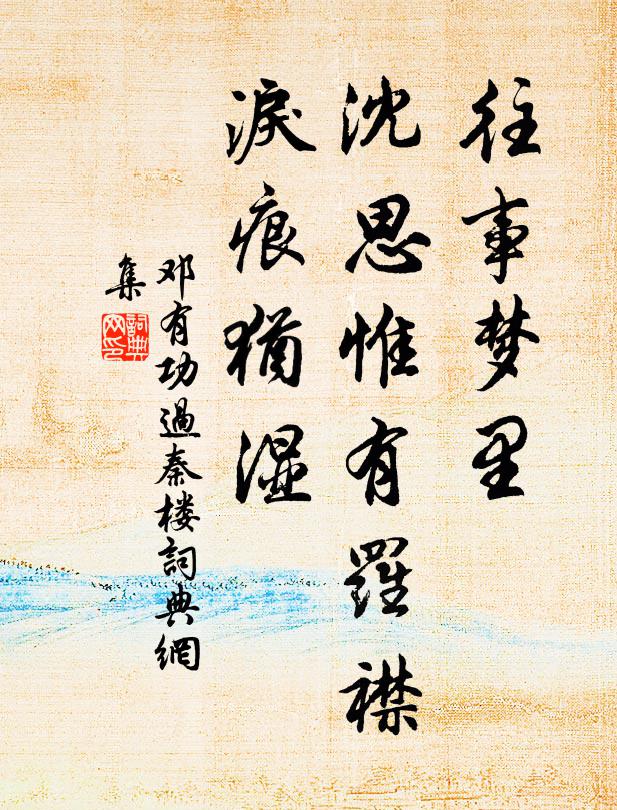 往事梦里
沈思惟有羅襟
淚痕猶湿
邓有功過秦楼詞典網
集
詞典
网印